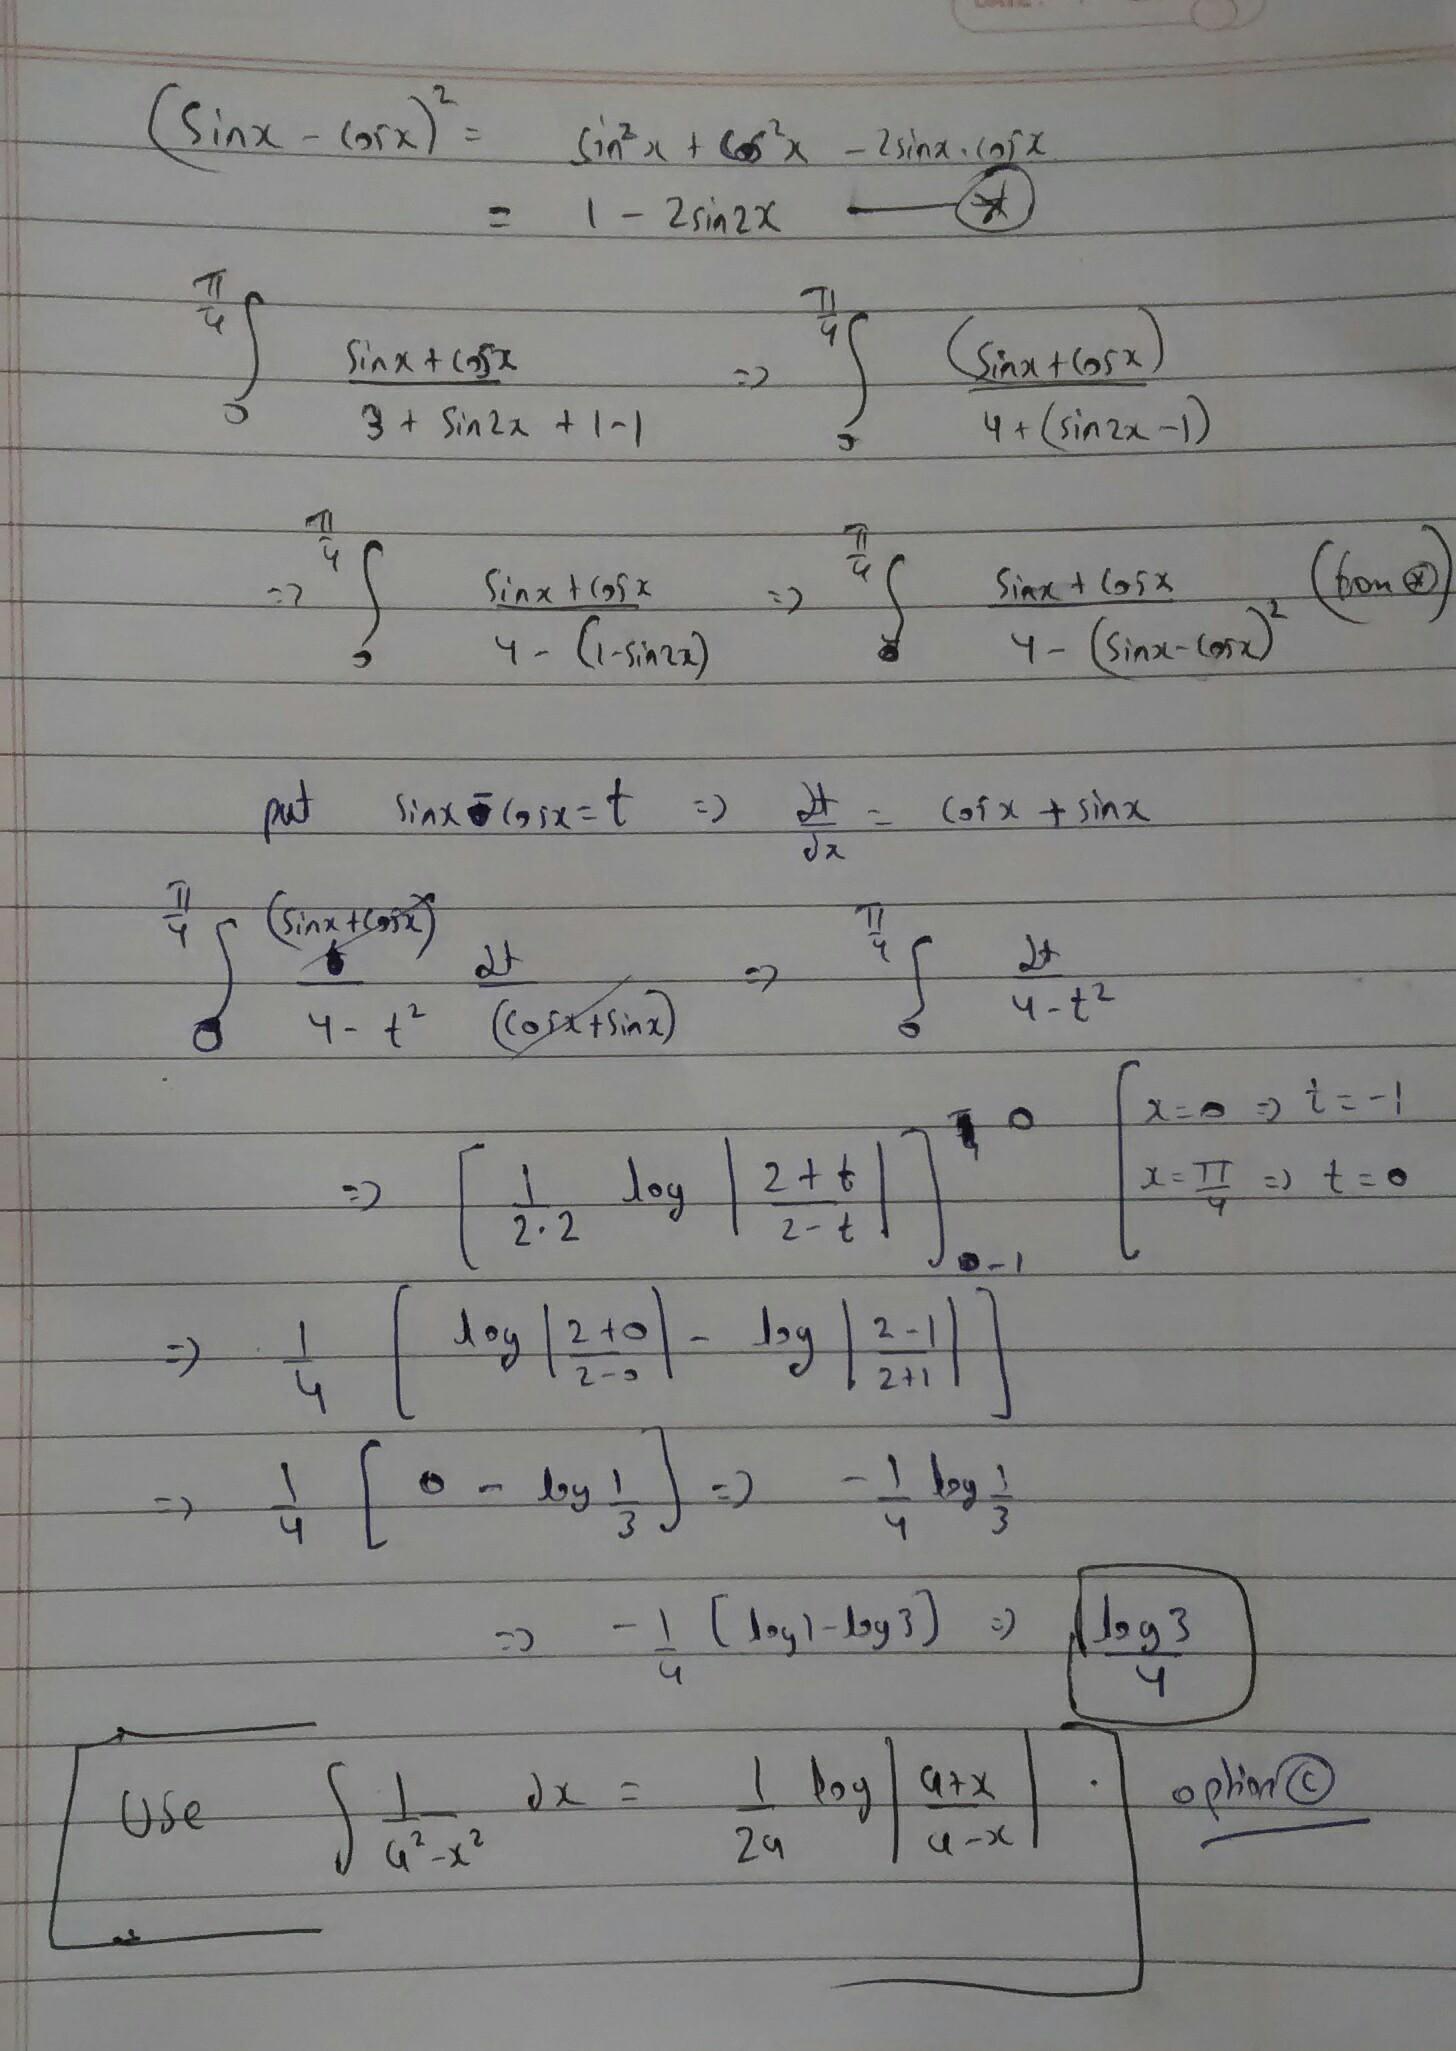 (Sinx - cosx)² = sin²x + cos²x - 2sinx.cosx
= 1 - 2sin2x —— ⊛
∫₀^(π/4) (sinx + cosx)/(3 + sin2x + 1-1) => ∫₀^(π/4) (sinx + cosx)/(4 + (sin2x - 1))
=> ∫₀^(π/4) (sinx + cosx)/(4 - (1-sin2x)) => ∫₀^(π/4) (sinx + cosx)/(4 - (sinx - cosx)²) (from ⊛)
put sinx - cosx = t => dt/dx = cosx + sinx
∫₀^(π/4) (sinx + cosx)/(4 - t²) dt/(cosx + sinx) => ∫₀^(π/4) dt/(4 - t²)
=> [1/(2.2) log |(2+t)/(2-t)|]₋₁^0 [x=0 => t=-1
x=π/4 => t=0
=> 1/4 [log |(2+0)/(2-0)| - log |(2-1)/(2+1)|]
=> 1/4 [0 - log 1/3] => -1/4 log 1/3
=> -1/4 (log1 - log3) => log3/4
Use ∫ 1/(a²-x²) dx = 1/2a log |(a+x)/(a-x)| . option ⓒ